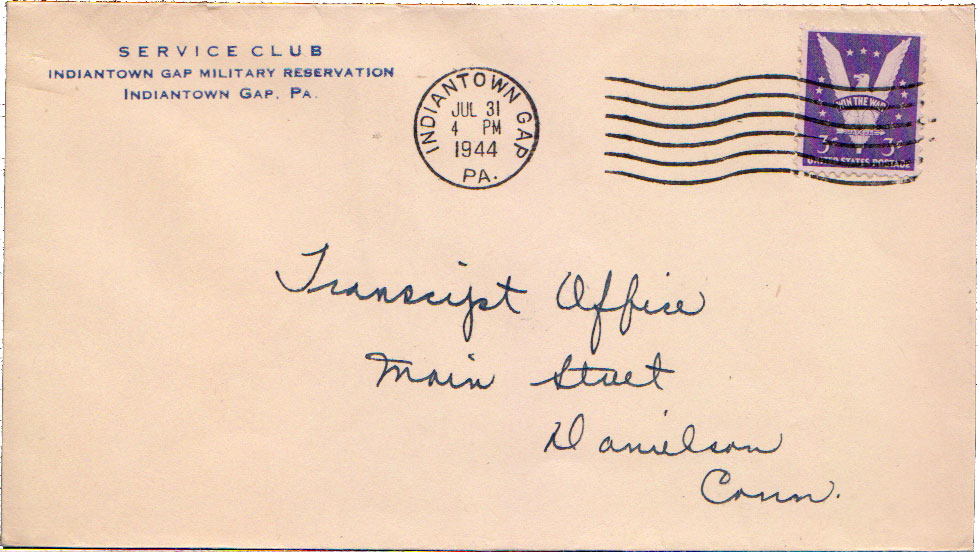 SERVICE CLUB
INDIANTOWN GAP MILITARY RESERVATION
INDIANTOWN GAP, PA.
INDIANTOWN GAP
JUL 31
4 PM
1944
PA.
WIN THE WAR
3¢ 3¢
UNITED STATES POSTAGE
Transcript Office
Main Street
Danielson
Conn.